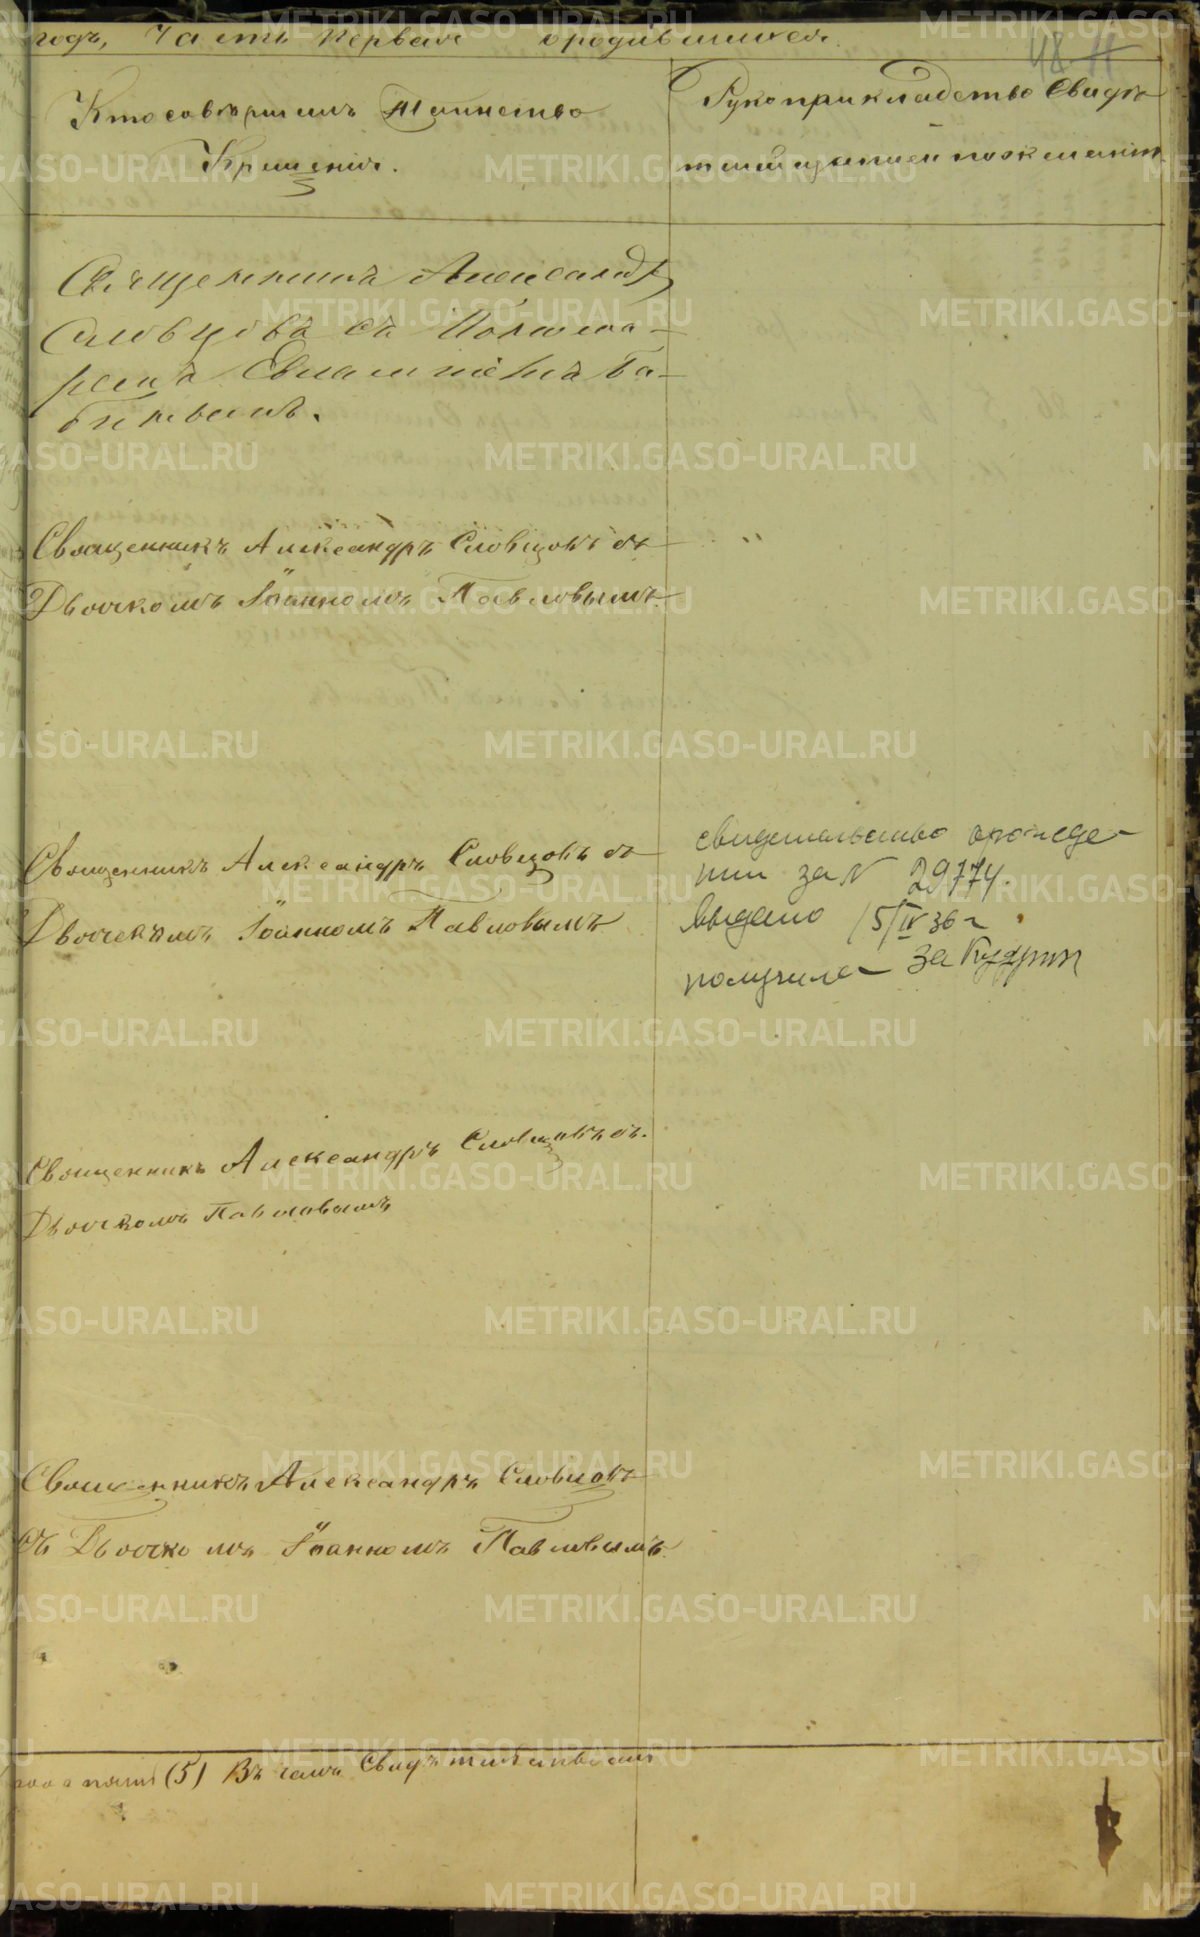 годъ, Часть Первая о родившихся.
Кто совершилъ Таинство
Крещенія.
Рукоприкладство Свидѣ
телей записей по желанію
Священникъ Александръ
Словцовъ съ
Священникъ Александръ Словцовъ съ
Дьячкомъ Іоанномъ Павловымъ
Священникъ Александръ Словцовъ съ
Дьячекомъ Іоанномъ Павловымъ
свидетельство о рожде-
нии за N 29774.
выдано 15/IV 36 г
получила за
Священникъ Александръ Словцовъ съ
Дьячкомъ Павловымъ
Священникъ Александръ Словцовъ
съ Дьячкомъ Іоанномъ Павловымъ
(5) Въ чемъ
METRIKI.GASO-URAL.RU